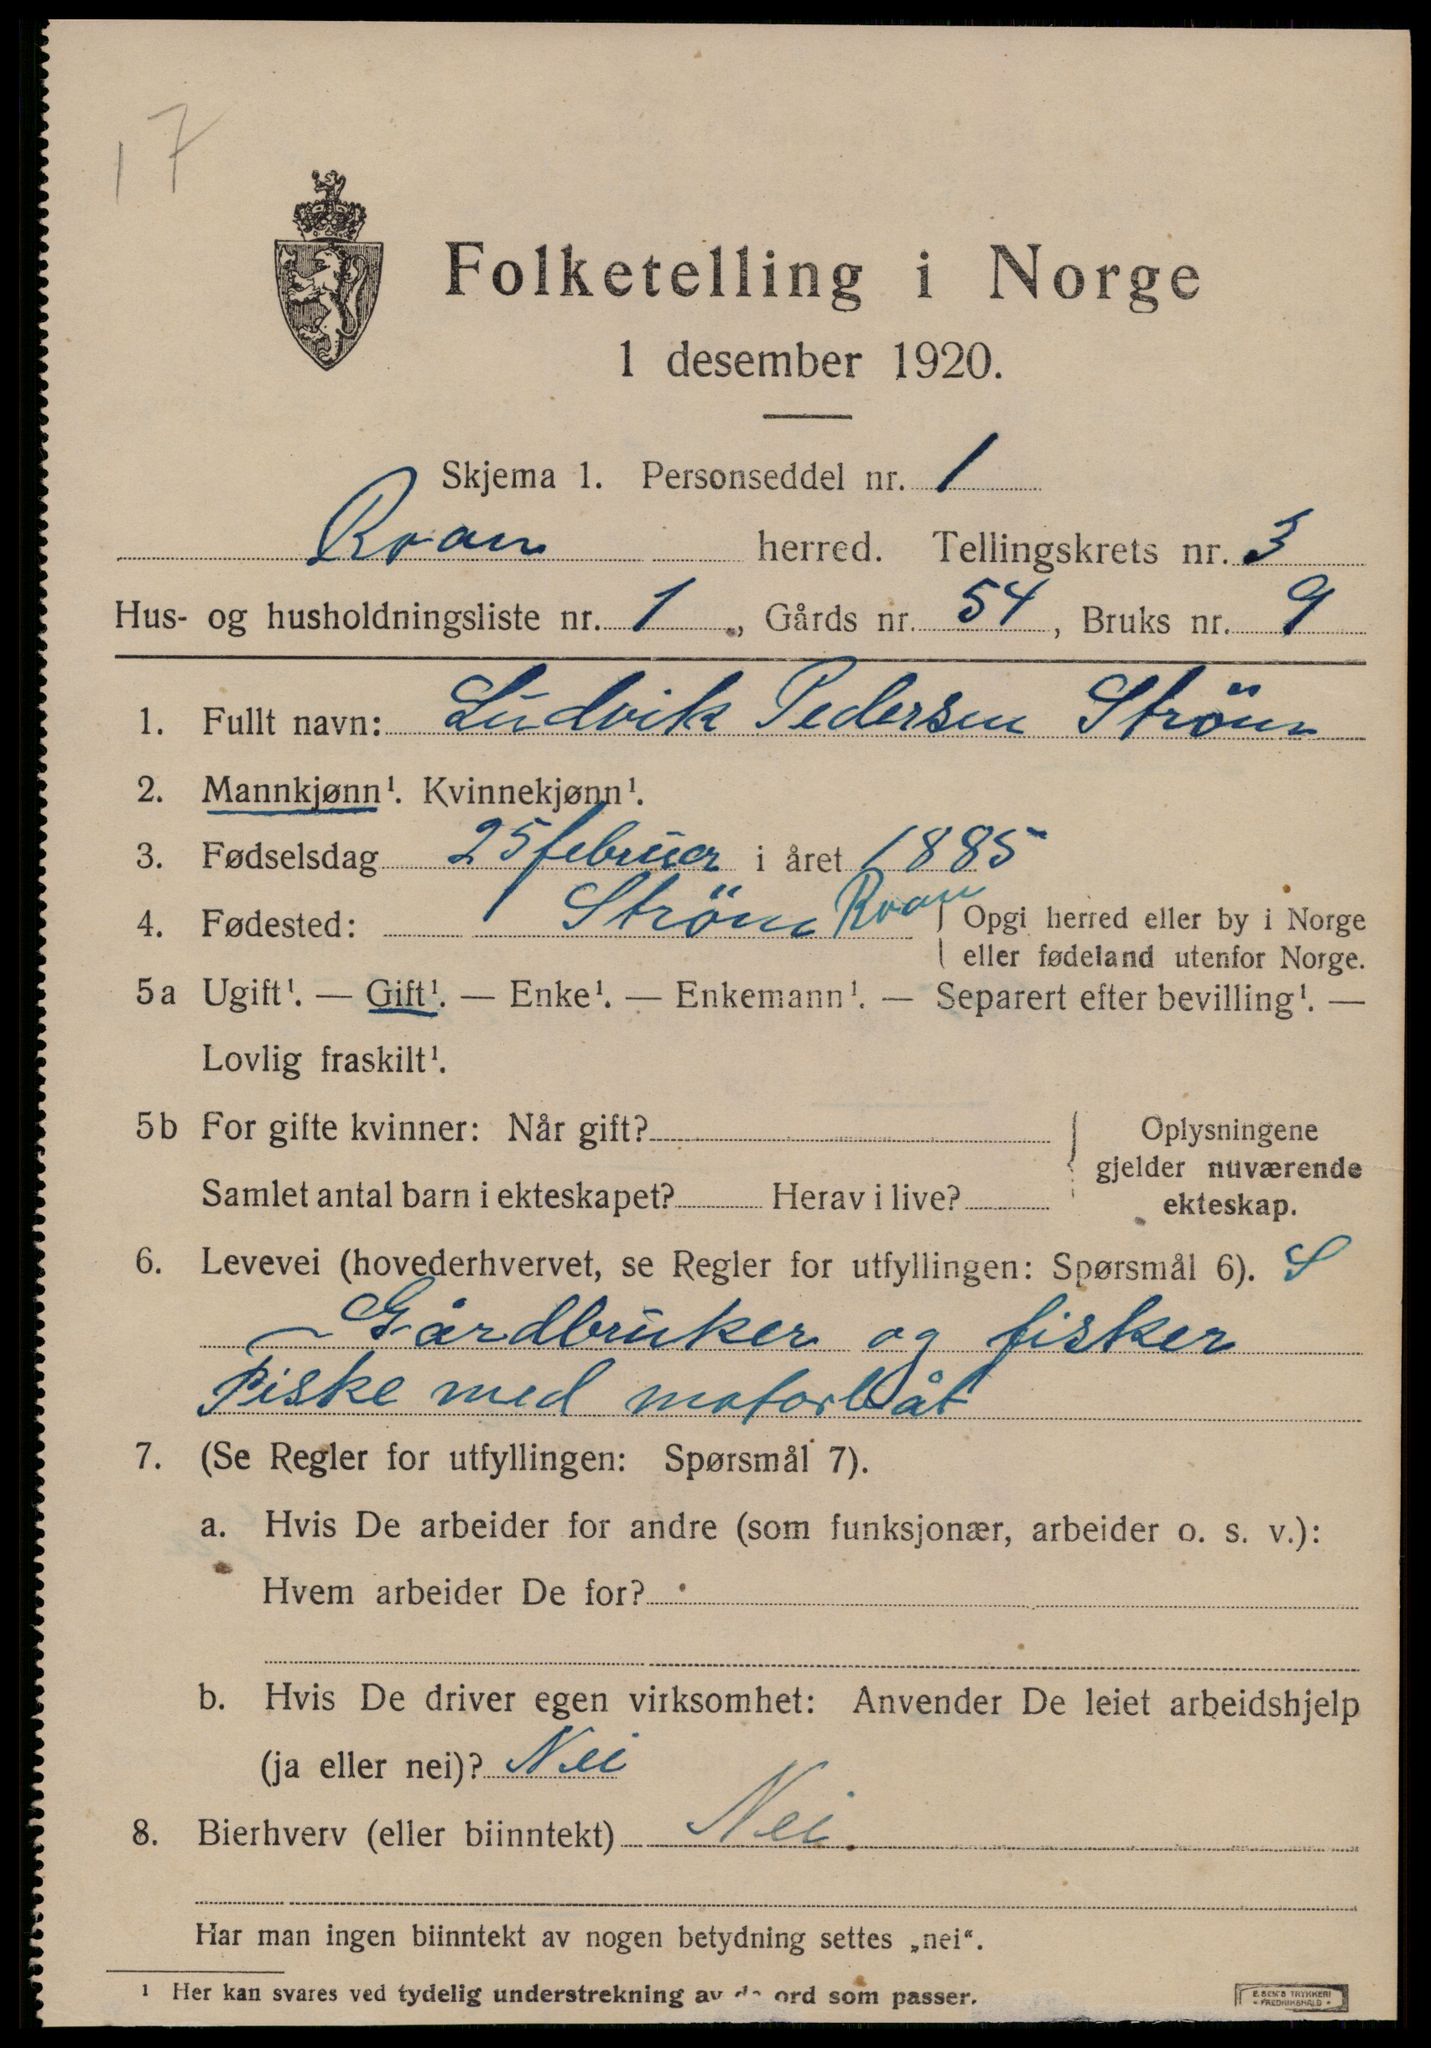 17
Folketelling i Norge
1 desember 1920.
Skjema 1. Personseddel nr. 1
Roan herred. Tellingskrets nr. 3
Hus- og husholdningsliste nr. 1, Gårds nr. 54, Bruks nr. 9
1. Fullt navn: Ludvik Pedersen Ström
2. Mannkjønn¹. Kvinnekjønn¹.
3. Fødselsdag 25 februer i året 1885
4. Fødested: Ström Roan { Opgi herred eller by i Norge
eller fødeland utenfor Norge.
5a Ugift¹. — Gift¹. — Enke¹. — Enkemann¹. — Separert efter bevilling¹. —
Lovlig fraskilt¹.
5b For gifte kvinner: Når gift?
Samlet antal barn i ekteskapet? Herav i live?
Oplysningene
gjelder nuværende
ekteskap.
6. Levevei (hovederhvervet, se Regler for utfyllingen: Spørsmål 6). S
Gårdbruker og fisker
Fiske med motorbåt
7. (Se Regler for utfyllingen: Spørsmål 7).
a. Hvis De arbeider for andre (som funksjonær, arbeider o. s. v.):
Hvem arbeider De for?
b. Hvis De driver egen virksomhet: Anvender De leiet arbeidshjelp
(ja eller nei)? Nei
8. Bierhverv (eller biinntekt) Nei.
Har man ingen biinntekt av nogen betydning settes „nei“.
¹ Her kan svares ved tydelig understrekning av de ord som passer.
E. SEM'S TRYKKERI
- FREDRIKSHALD -